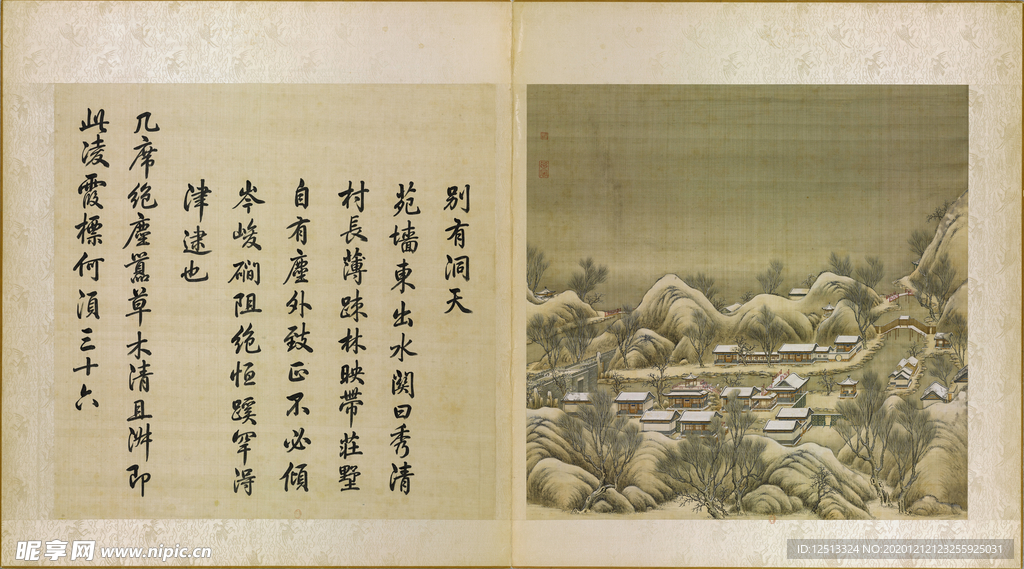 別有洞天
苑墻東出水關曰秀清
村長薄疎林映帶莊墅
自有塵外致正不必傾
岑峻磵阻絶恒蹊罕得
津逮也
几席絶塵嚣草木清且淑即
此凌霞標何須三十六
昵享网 www.nipic.cn
ID:12513324 NO:20201212123255925031